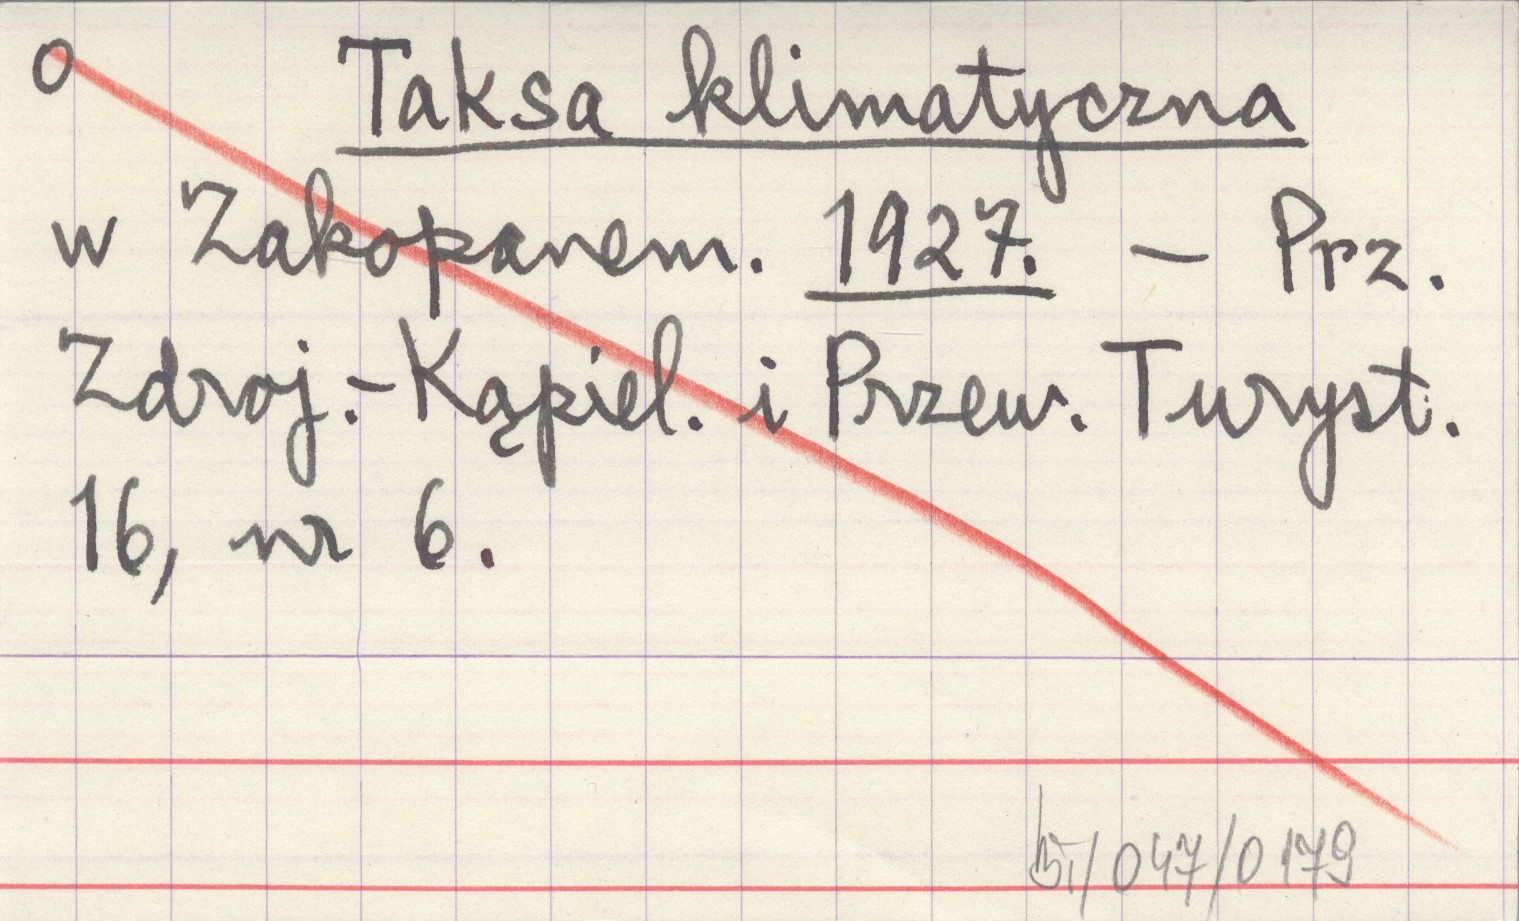 O Taksa klimatyczna
w Zakopanem. 1927. – Prz.
Zdroj.-Kąpiel. i Przew. Turyst.
16, nr 6.
/047/0179